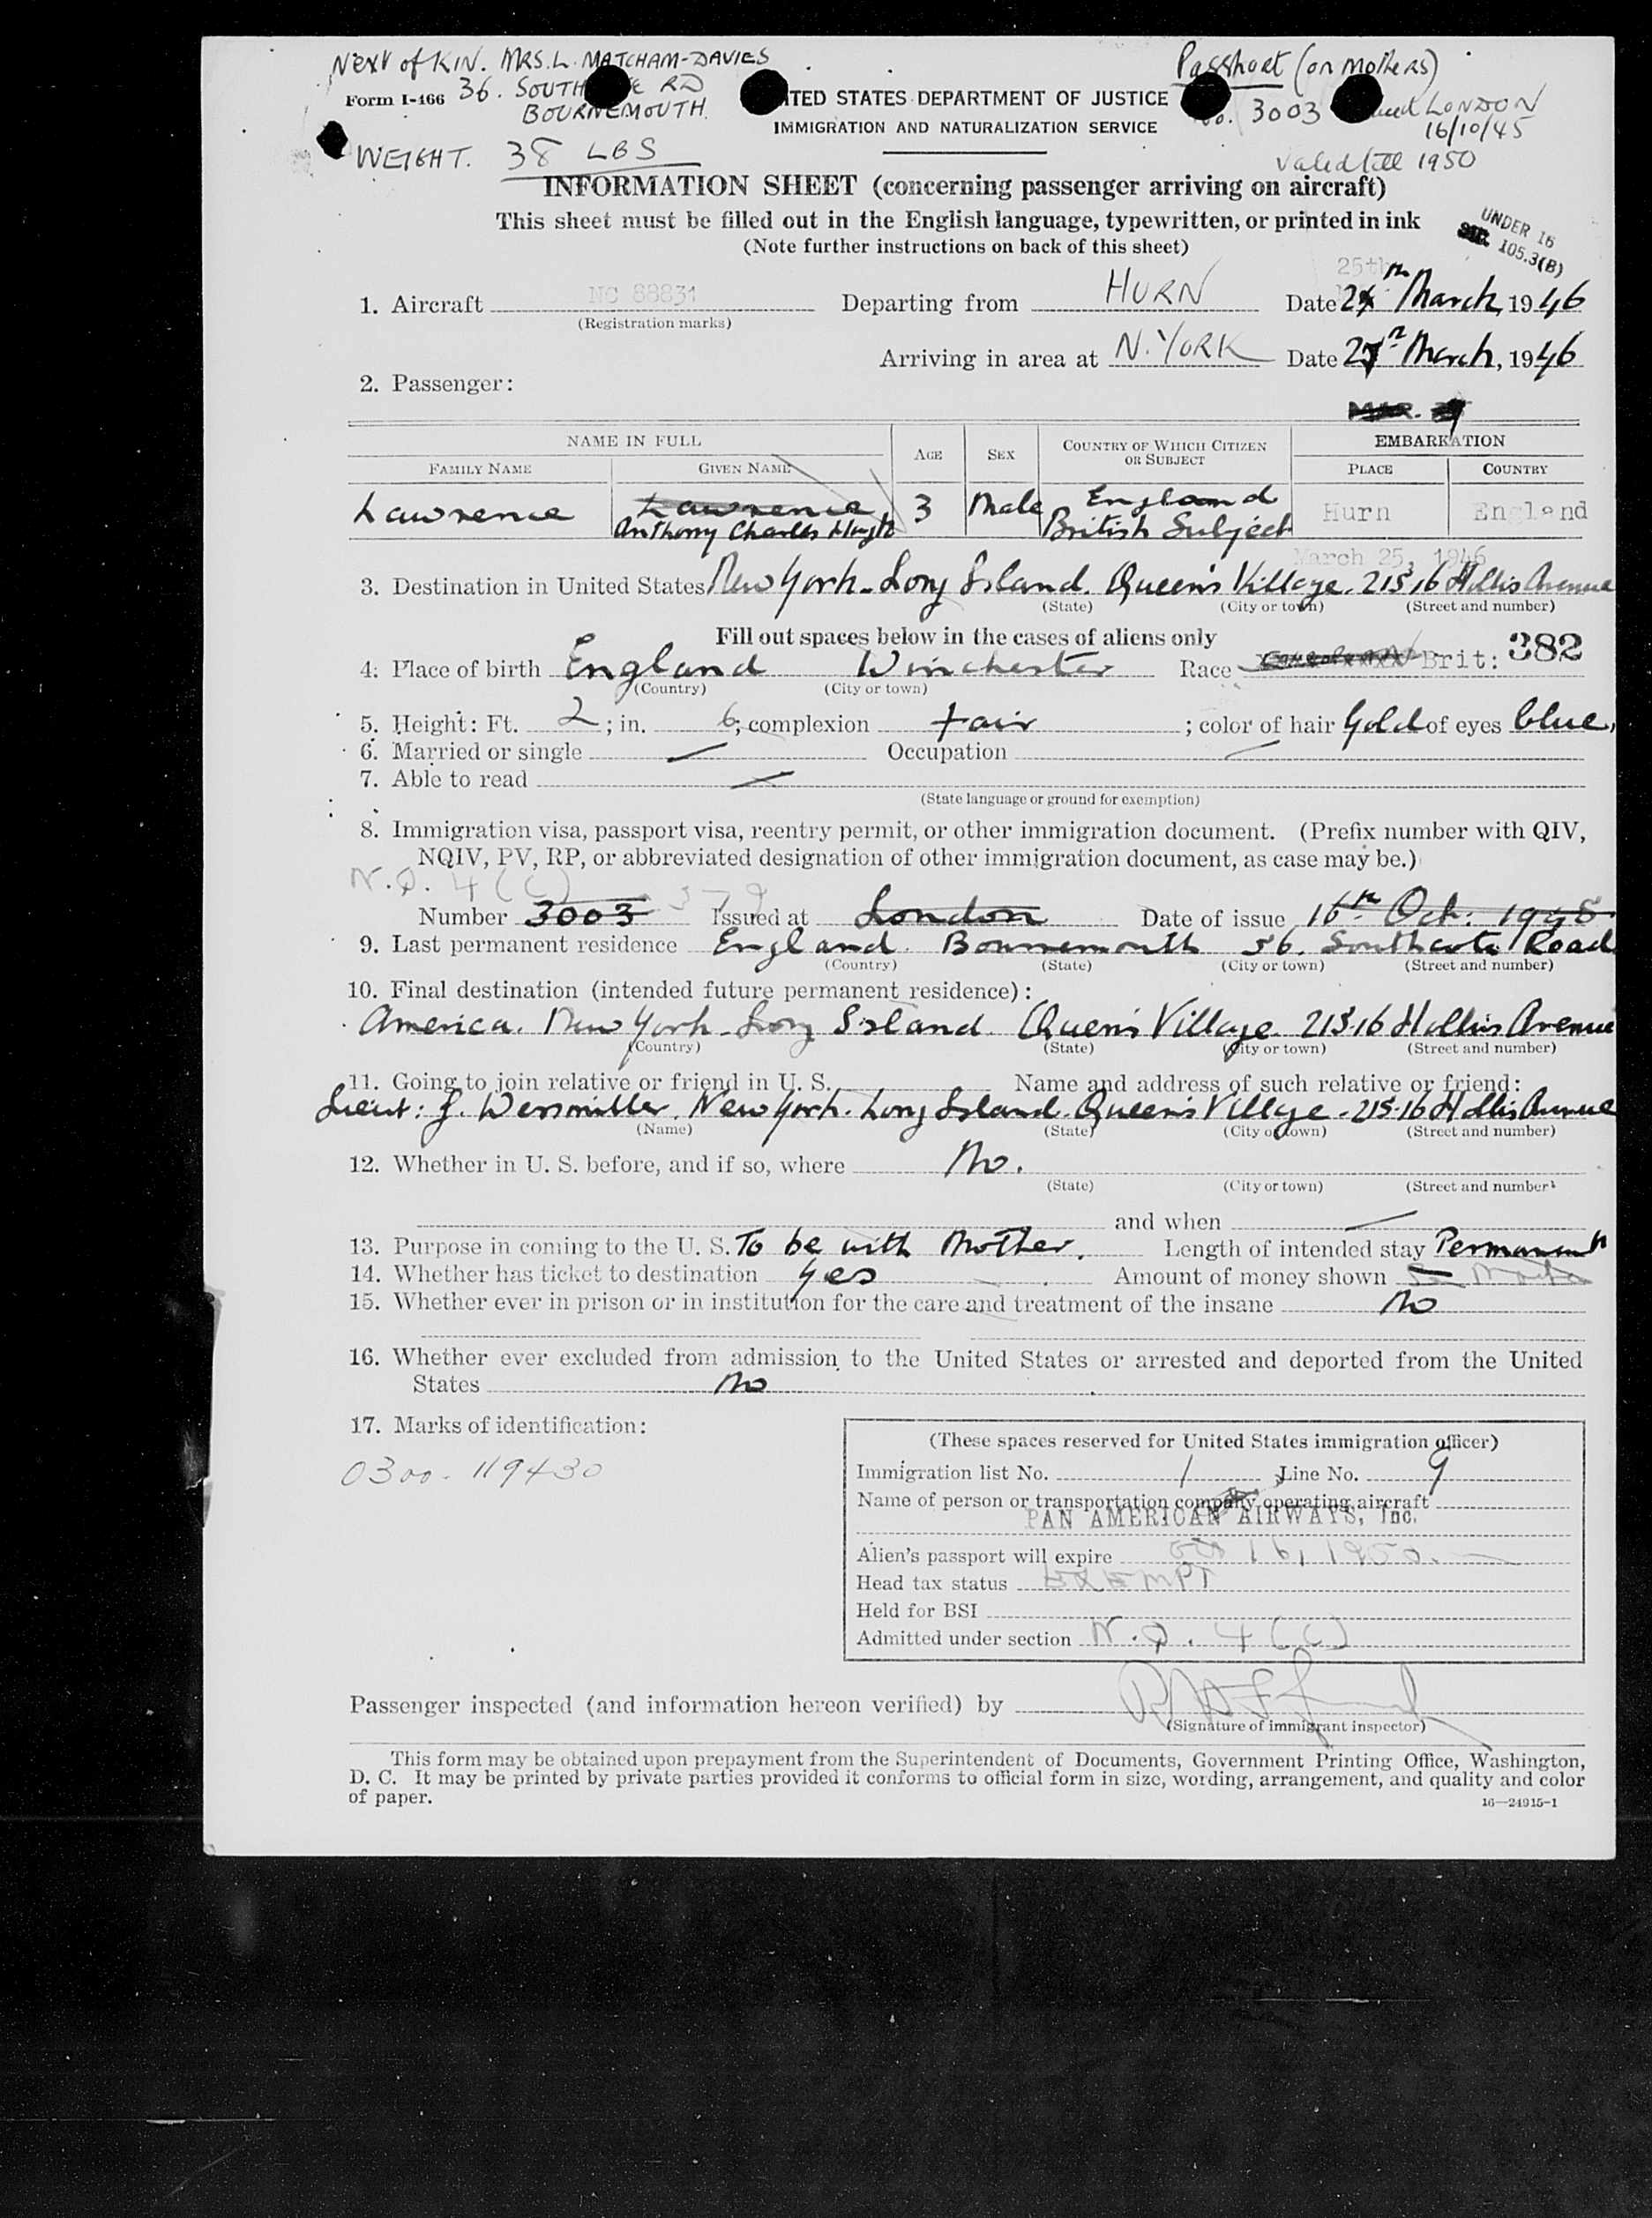 Next of KIN. MRS. L. MATCHAM-DAVIES
Passport (on mothers)
Form I-466 36. SOUTH RD
UNITED STATES DEPARTMENT OF JUSTICE
No. 3003 LONDON
BOURNEMOUTH.
IMMIGRATION AND NATURALIZATION SERVICE
16/10/45
WEIGHT. 38 LBS
Valid till 1950
INFORMATION SHEET (concerning passenger arriving on aircraft)
This sheet must be filled out in the English language, typewritten, or printed in ink
(Note further instructions on back of this sheet)
UNDER 16
SEC. 105.3(B)
25th
1. Aircraft NC 88831 Departing from HURN Date March, 1946
(Registration marks)
Arriving in area at N. YORK Date 27th March, 1946
2. Passenger:
MAR.
NAME IN FULL AGE SEX COUNTRY OF WHICH CITIZEN OR SUBJECT EMBARKATION
FAMILY NAME GIVEN NAME PLACE COUNTRY
Lawrence Lawrence 3 Male England Hurn England
Anthony Charles British Subject
March 25, 1946
3. Destination in United States New York. Long Island. Queen's Village. 215.16 Hollis Avenue
(State) (City or town) (Street and number)
Fill out spaces below in the cases of aliens only
382
4. Place of birth England Winchester Race Brit:
(Country) (City or town)
5. Height: Ft. 2; in. 6; complexion Fair; color of hair Gold of eyes blue,
6. Married or single / Occupation /
7. Able to read /
(State language or ground for exemption)
8. Immigration visa, passport visa, reentry permit, or other immigration document. (Prefix number with QIV,
NQIV, PV, RP, or abbreviated designation of other immigration document, as case may be.)
N.Q. 4 (C) 379
Number 3003 Issued at London Date of issue 16th Oct: 1945
9. Last permanent residence England. Bournemouth 36. Southcote Road
(Country) (State) (City or town) (Street and number)
10. Final destination (intended future permanent residence):
America. New York. Long Island. Queen's Village. 215.16 Hollis Avenue
(Country) (State) (City or town) (Street and number)
11. Going to join relative or friend in U. S. Name and address of such relative or friend:
Lieut: J. New York. Long Island. Queen's Village. 215.16 Hollis Avenue
(Name) (State) (City or town) (Street and number)
12. Whether in U. S. before, and if so, where No.
(State) (City or town) (Street and number)
and when /
13. Purpose in coming to the U. S. To be with Mother. Length of intended stay Permanent
14. Whether has ticket to destination yes Amount of money shown
15. Whether ever in prison or in institution for the care and treatment of the insane No
16. Whether ever excluded from admission to the United States or arrested and deported from the United
States No
17. Marks of identification:
0300-119430
(These spaces reserved for United States immigration officer)
Immigration list No. 1 Line No. 9
Name of person or transportation company operating aircraft
PAN AMERICAN AIRWAYS, Inc.
Alien's passport will expire Oct 16, 1950.
Head tax status EXEMPT
Held for BSI
Admitted under section N.Q. 4 (C)
Passenger inspected (and information hereon verified) by
(Signature of immigrant inspector)
This form may be obtained upon prepayment from the Superintendent of Documents, Government Printing Office, Washington,
D. C. It may be printed by private parties provided it conforms to official form in size, wording, arrangement, and quality and color
of paper.
16—24915-1